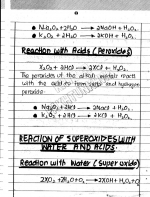 • Na₂O₂ + 2H₂O → 2NaOH + H₂O₂
• K₂O₂ + 2H₂O → 2KOH + H₂O₂
Reaction with Acids (Peroxides)
X₂O₂ + 2HCl → 2XCl + H₂O₂
The peroxides of the alkali metals react
with the acids to form salts and hydrogen
peroxide.
• Na₂O₂ + 2HCl → 2NaCl + H₂O₂
• K₂O₂ + 2HCl → 2KCl + H₂O₂
REACTION OF SUPEROXIDES WITH
WATER AND ACIDS:
Reaction with Water (Super oxide)
2XO₂ + 2H₂O → 2XOH + H₂O₂ + O₂